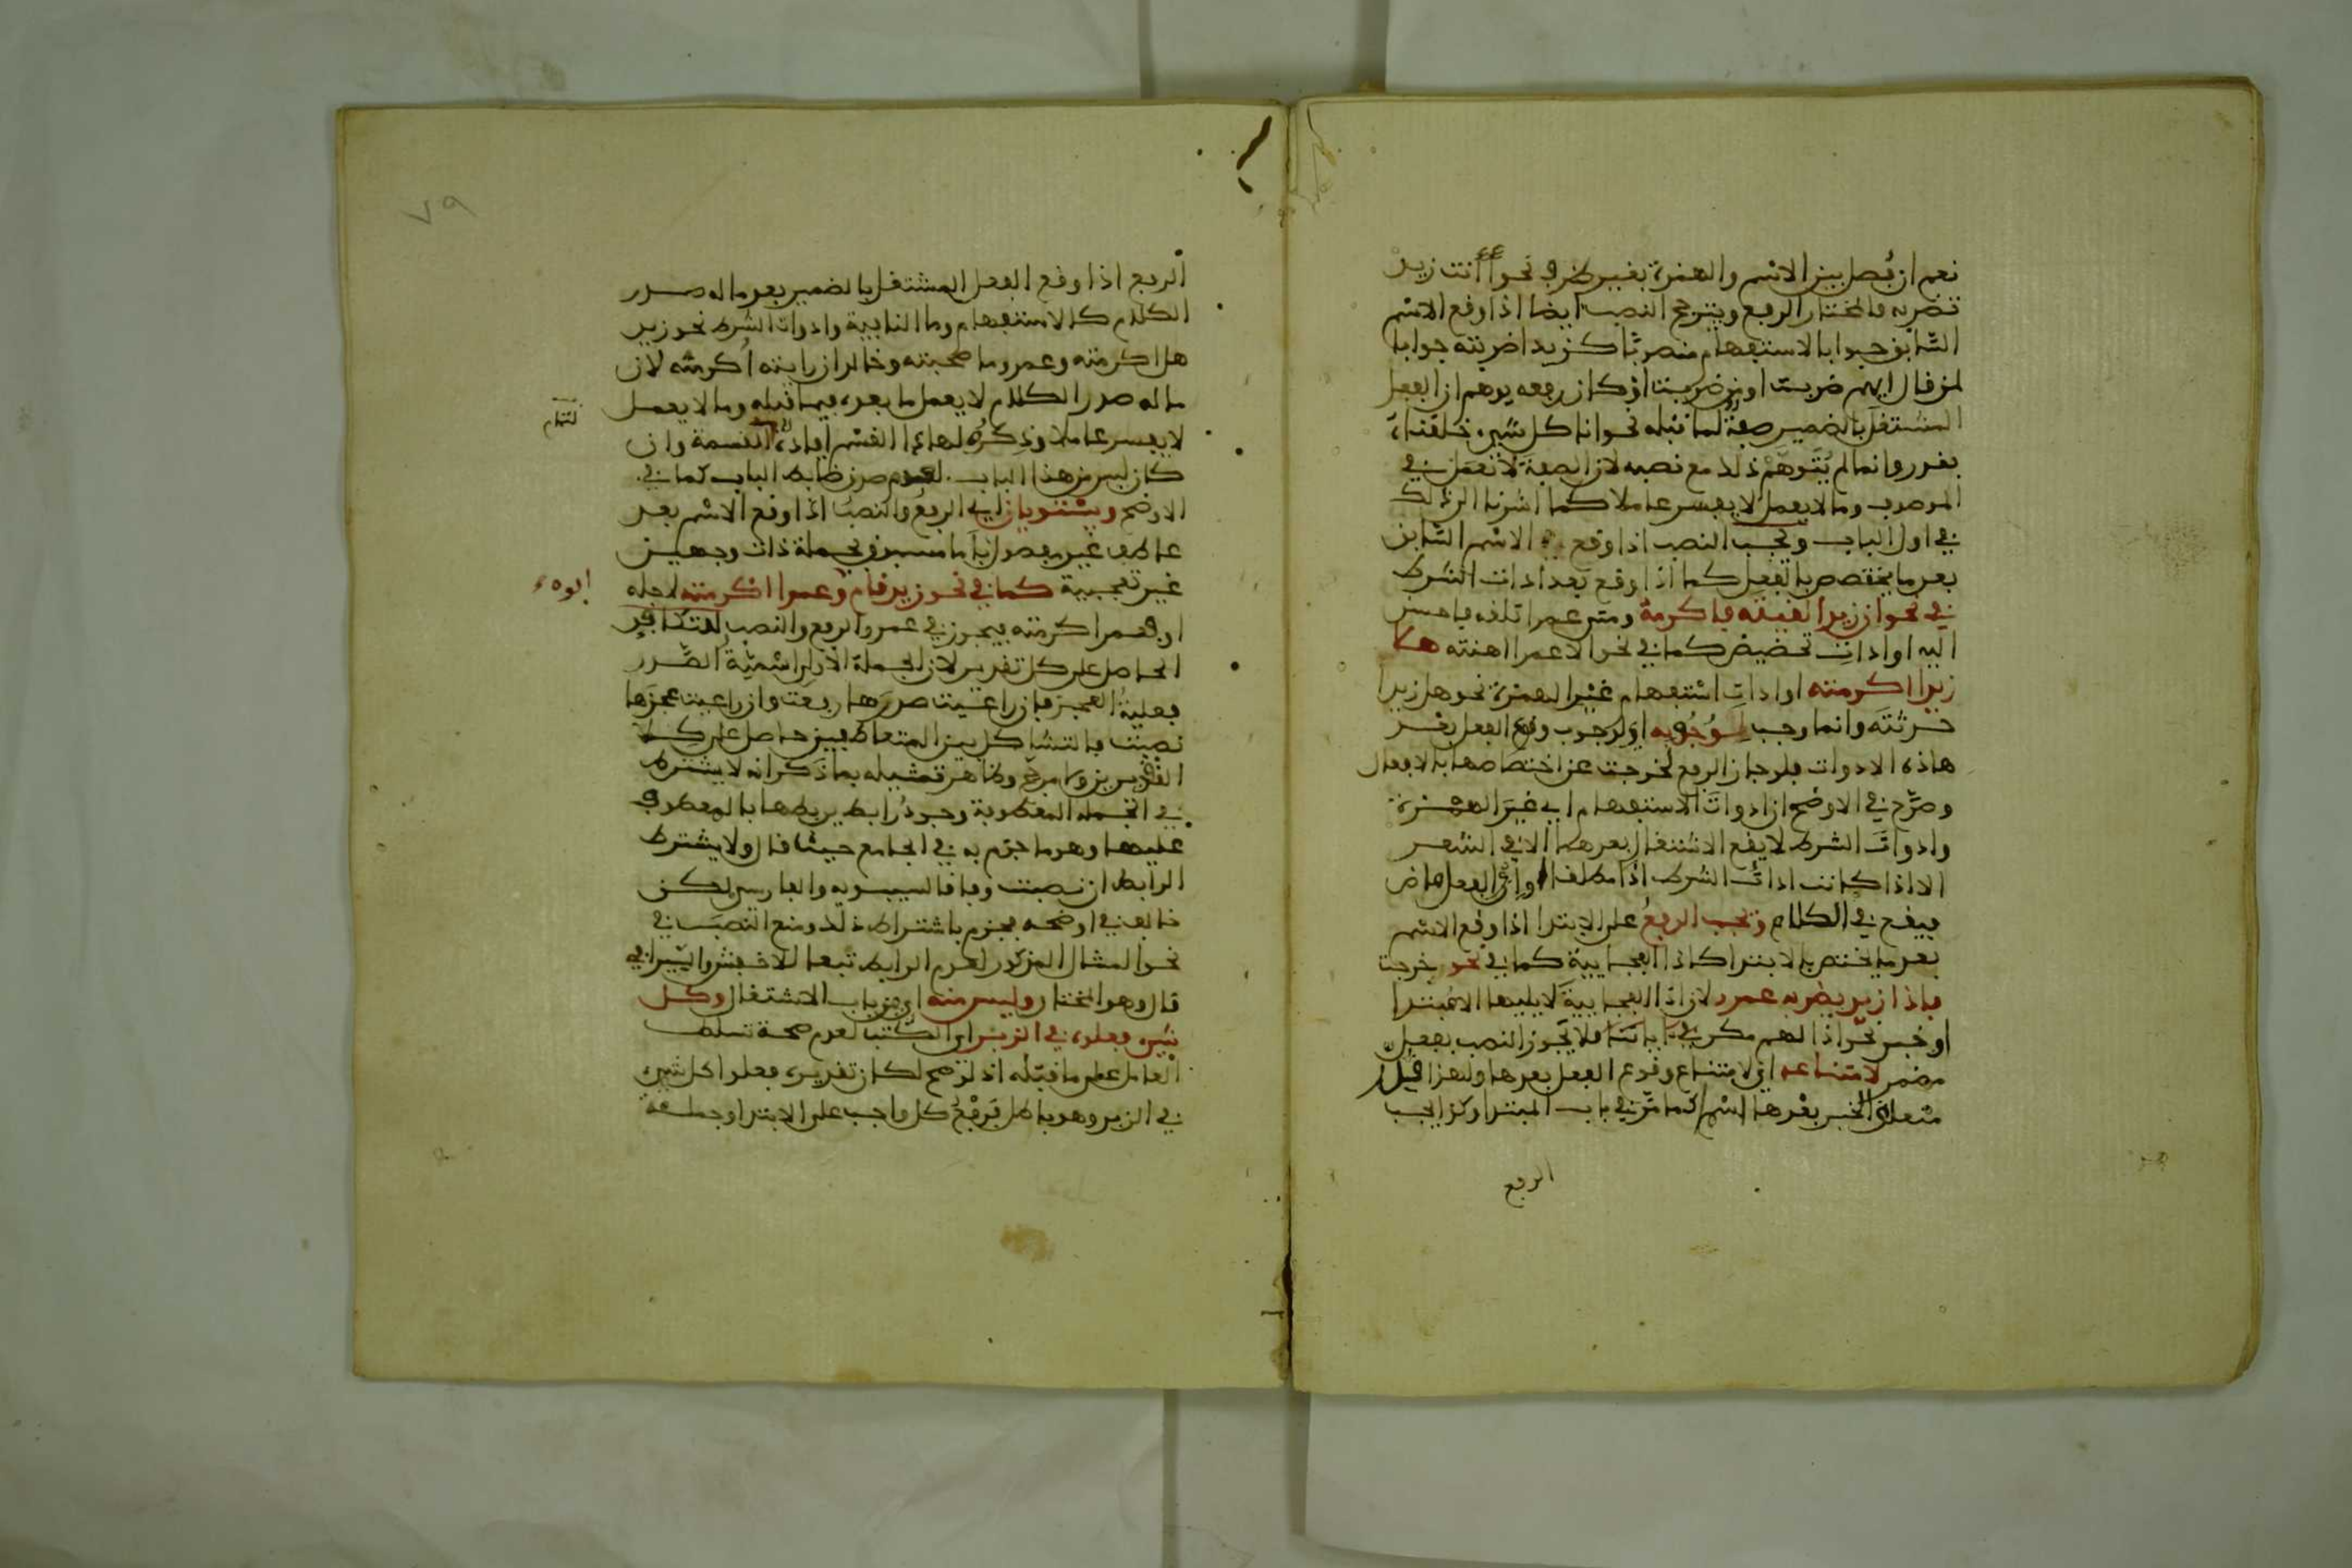 نعم ان فصل بين الاسم والهمزة بغير ظرف نحو أأنت زيد
تضربه فالمختار الرفع ويترجح النصب ايضا اذا وقع الاسم
السابق جوابا لاستفهام منصوبا كزيدا ضربته جوابا
لمن قال ايهم ضربت او من ضربت اذ كان رفعه يوهم ان الفعل
المشتغل بالضمير صفة لما قبله نحو انا كل شيء خلقناه
بقدر وانما لم يتوهم ذلك مع نصبه لان الصفة لا تعمل في
الموصوف وما لا يعمل لا يفسر عاملا كما اشرنا الى ذلك
في اول الباب ويجب النصب اذا وقع الاسم السابق
بعد ما يختص بالفعل كما اذا وقع بعد ادات الشرط
في نحو ان زيدا لقيته فاكرمه ومتى عمرا تلقه فاحسن
اليه او ادات تحضيض كما في نحو الا عمرا اهنته هلا
زيدا اكرمته او ادات استفهام غير الهمزة نحو هل زيدا
حرثته وانما وجب لوجوبه اي لوجوب وقوع الفعل بعد
هاذه الادوات فلو جاز الرفع لخرجت عن اختصاصها بالافعال
وصرح في الاوضح ان ادوات الاستفهام اي غير الهمزة
وادوات الشرط لا يقع الاشتغال بعدهما الا في الشعر
الا اذا كانت ادات الشرط اذا مطلقا او ان والفعل ماض
فيقع في الكلام ويجب الرفع على الابتدا اذا وقع الاسم
بعد ما يختص بالابتدا كاذا الفجاييّة كما في نحو خرجت
فاذا زيد يضربه عمرو لان اذا الفجايية لا يليها الا مبتدا
او خبر نحو اذا لهم مكر في اياتنا فلا يجوز النصب بفعل
مضمر لامتناعه اي لامتناع وقوع الفعل بعدها ولهذا قدر
متعلق الخبر بعدها اسم كما مر في باب المبتدا وكذا يجب
الرفع
٧٩
الرفع اذا وقع الفعل المشتغل بالضمير بعد ما له صدر
الكلام كالاستفهام وما النافية وادوات الشرط نحو زيد
هل اكرمته وعمرو ما صحبته وخالد ان رايته اكرمته لان
ما له صدر الكلام لا يعمل ما بعده فيما قبله وما لا يعمل
لا يفسر عاملا وذكره لهاذا القسم افاده القسمة وان
لتمام
كان ليس من هذا الباب لعدم صدق ضابط الباب كما في
الاوضح ويستويان اي الرفع والنصب اذا وقع الاسم بعد
عاطف غير مفصول باما مسبوق بجملة ذات وجهين
غير تعجبية كما في نحو زيد قام وعمرا اكرمته لاجله
ابوه
او فعمرا اكرمته فيجوز في عمرو الرفع والنصب للتكافؤ
الحاصل على كل تقدير لان الجملة الاولى اسمية الصدر
فعلية العجز فان راعيت صدرها رفعت وان راعيت عجزها
نصبت فالتشاكل بين المتعاطفين حاصل على كلا
التقديرين ولا مرجح وظاهر تمثيله بما ذكر انه لا يشترط
في الجملة المعطوفة وجود رابط يربطها بالمعطوف
عليها وهو ما جزم به في الجامع حيث قال ولا يشترط
الرابط ان نصبت وفاقا لسيبويه والفارسي لكن
خالف في اوضحه فجزم باشتراط ذلك ومنع النصب في
نحو المثال المذكور لعدم الرابط تبعا للاخفش والسيرافي
قال وهو المختار وليس منه اي من باب الاشتغال وكل
شيء فعلوه في الزبر اي الكتب لعدم صحة تسلط
العامل على ما قبله اذ لو صح لكان تقديره فعلوا كل شيء
في الزبر وهو باطل فرفع كل واجب على الابتدا وجملة